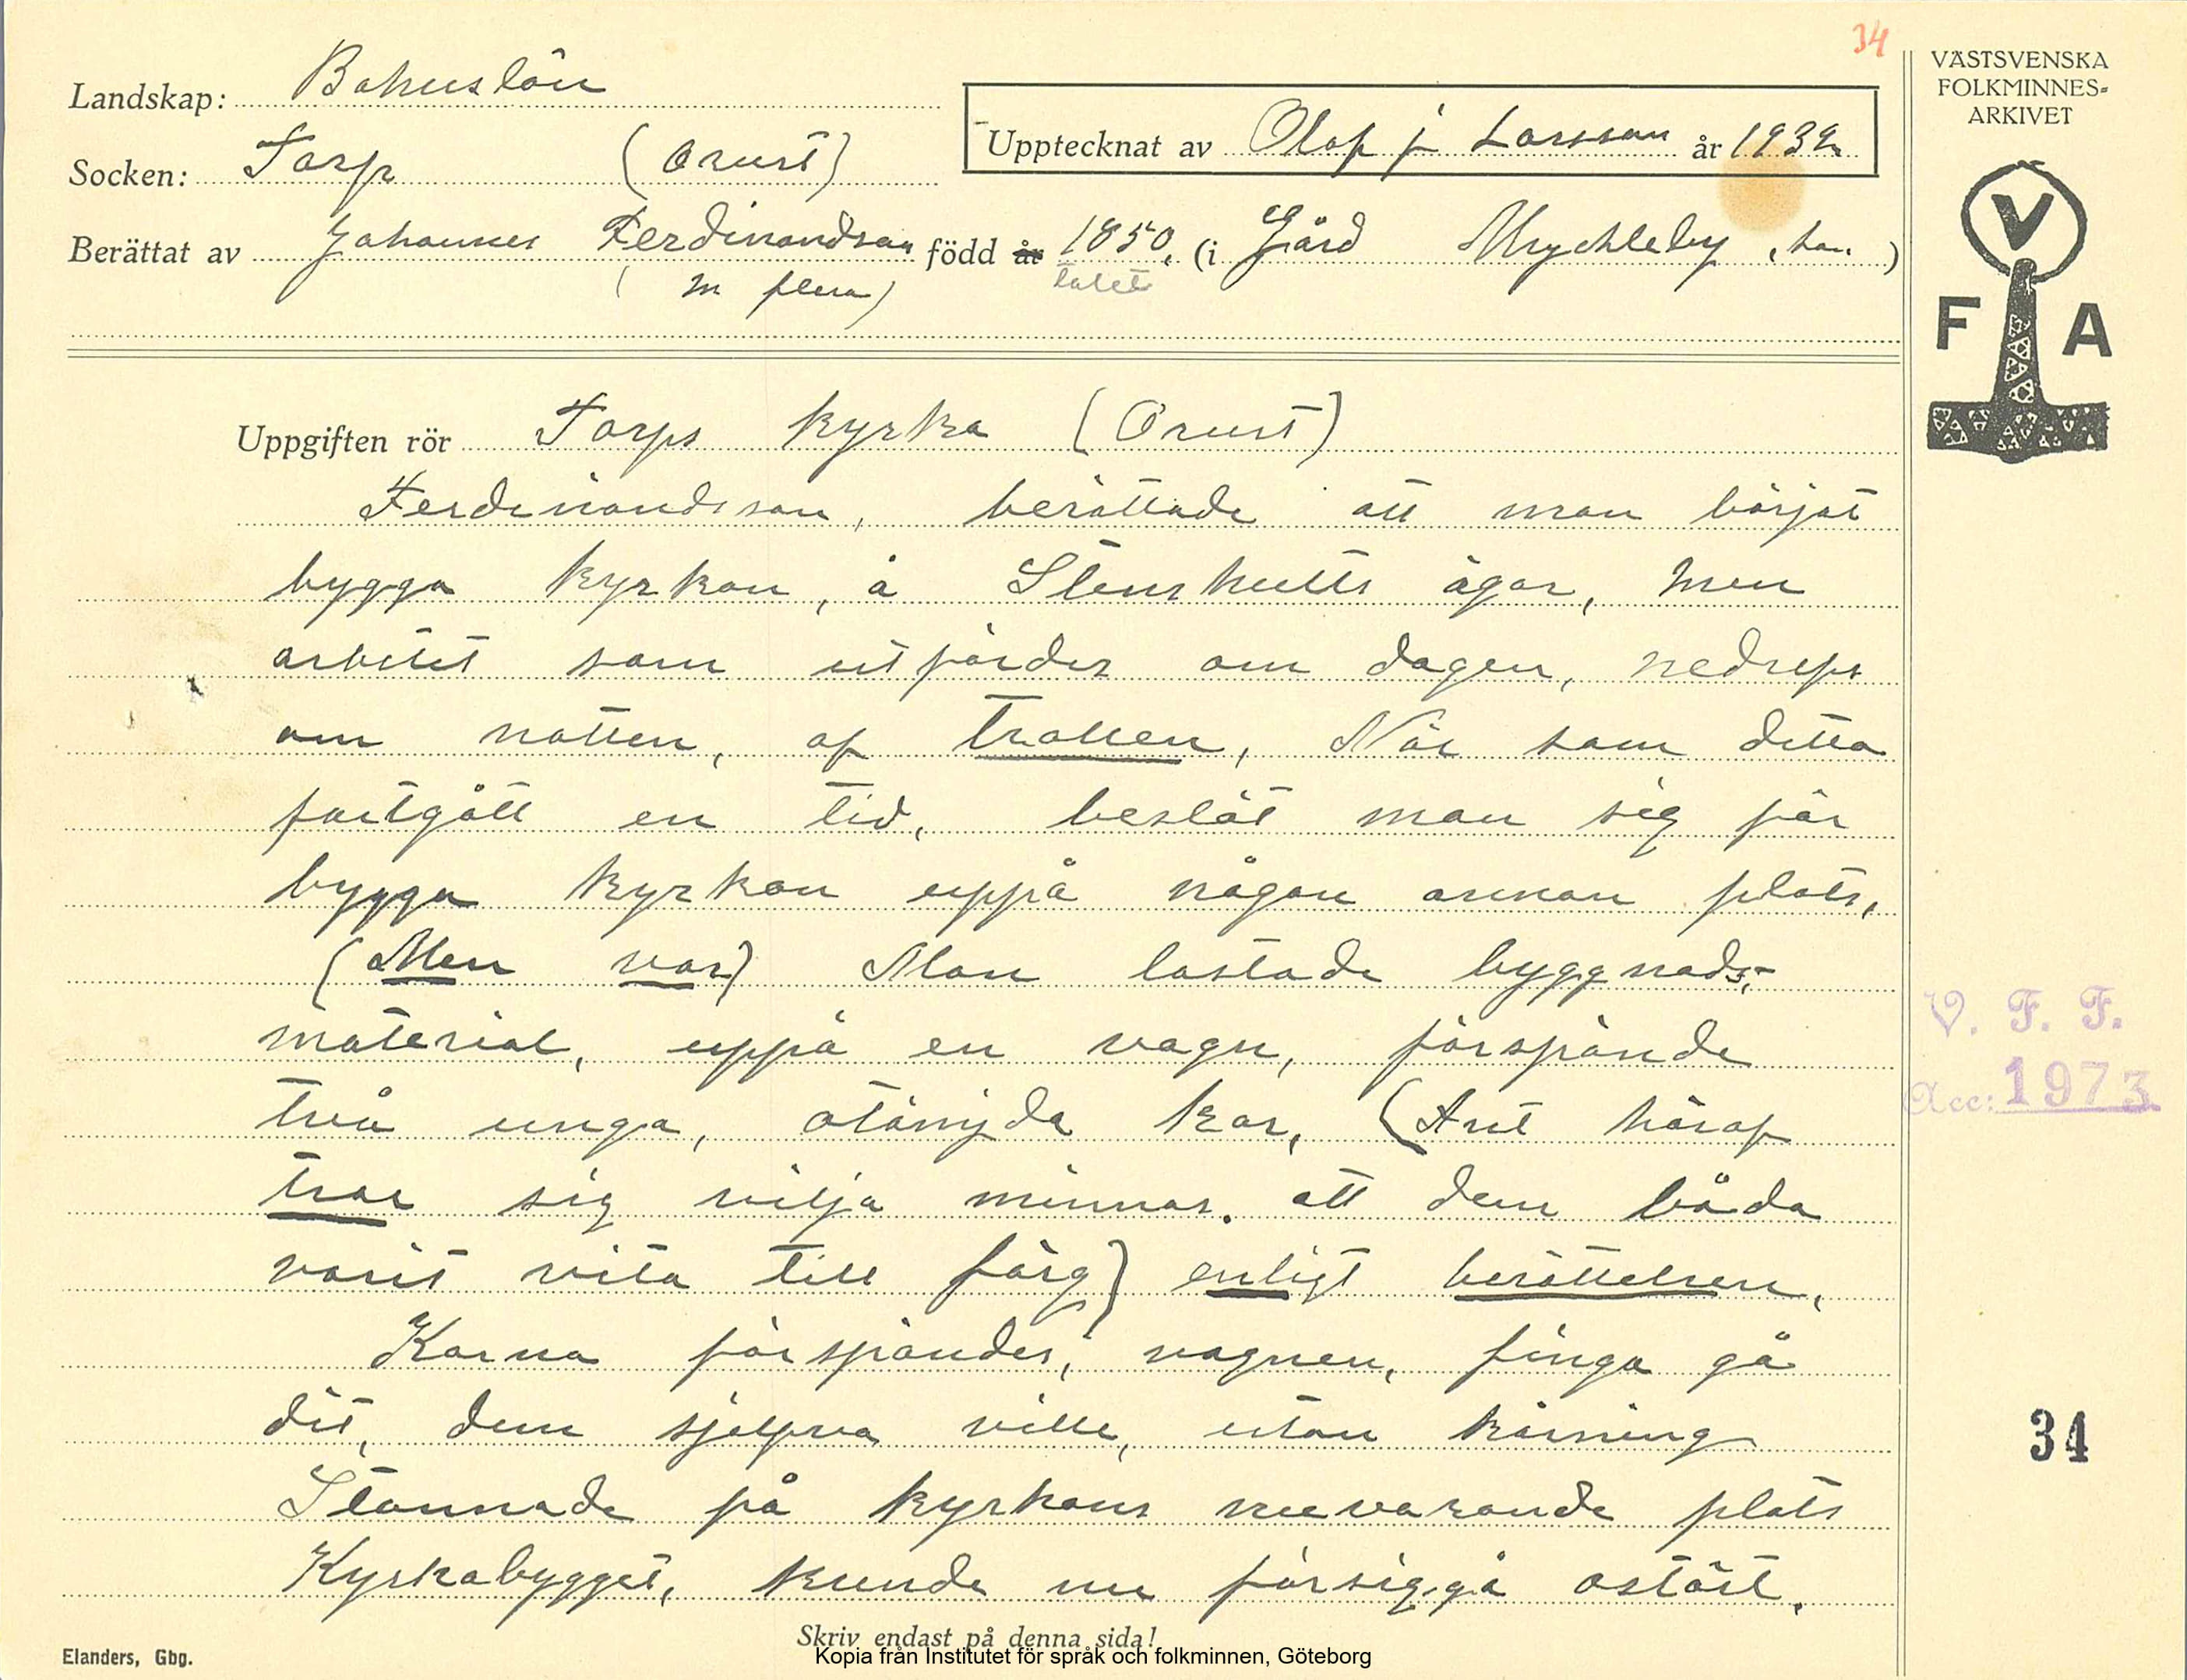 34
VÄSTSVENSKA
FOLKMINNES-
ARKIVET
Landskap: Bohuslän
Upptecknat av Olof J Larsson år 1932.
Socken: Torp (Orust)
Berättat av Johannes Ferdinandsan född år 1850, (i Gård Myckleby, sn. )
( m flera) talet
V
F A
Uppgiften rör Torps kyrka (Orust)
Ferdinandsson, berättade att man börjat
bygga kyrkan, å Stenshults ägor, men
arbetet som utfördes om dagen, nedrefs
om natten, af trollen, När som detta
fortgått en tid, beslöt man sig för
bygga kyrkan uppå någon annan plats,
(Men var) Man lastade byggnads,-
material, uppå en vagn, förspände
två unga, otämjda kor, (Ant häraf
tror sig vilja minnas. att dem båda
varit vita till färg) enligt berättelsen,
Korna förspändes, vagnen, finga gå
dit, dem sjelfva ville, utan körning
Stannade på kyrkans nuvarande plats
Kyrkabygget, kunde nu försiggå ostört.
V. F. F.
Acc: 1973
34
Skriv endast på denna sida!
Elanders, Gbg.
Kopia från Institutet för språk och folkminnen, Göteborg